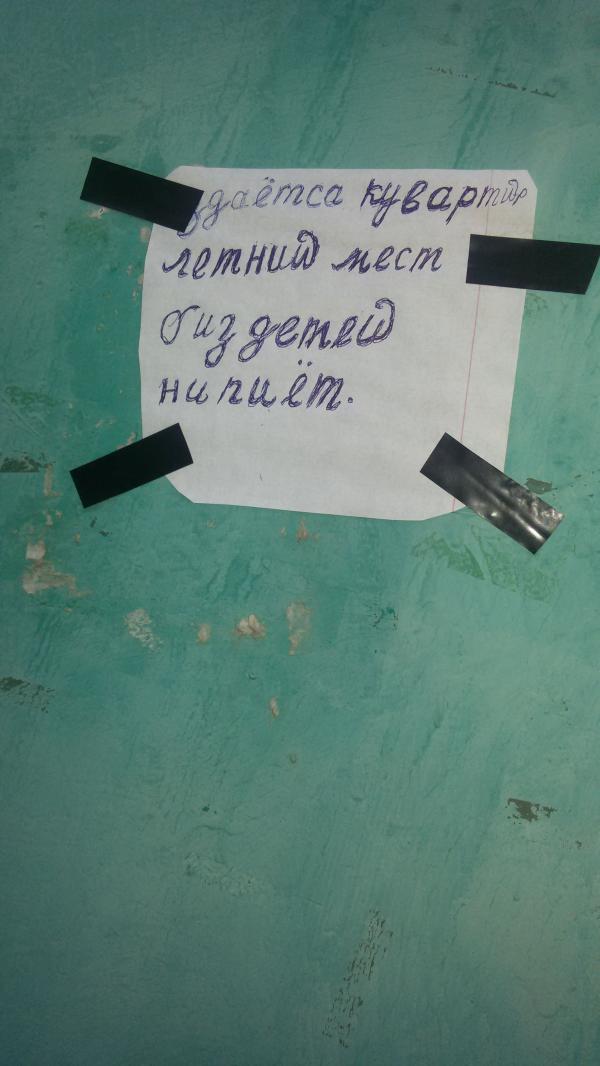 здаётса кувартир
летний мест
биз детей
ни пиёт.